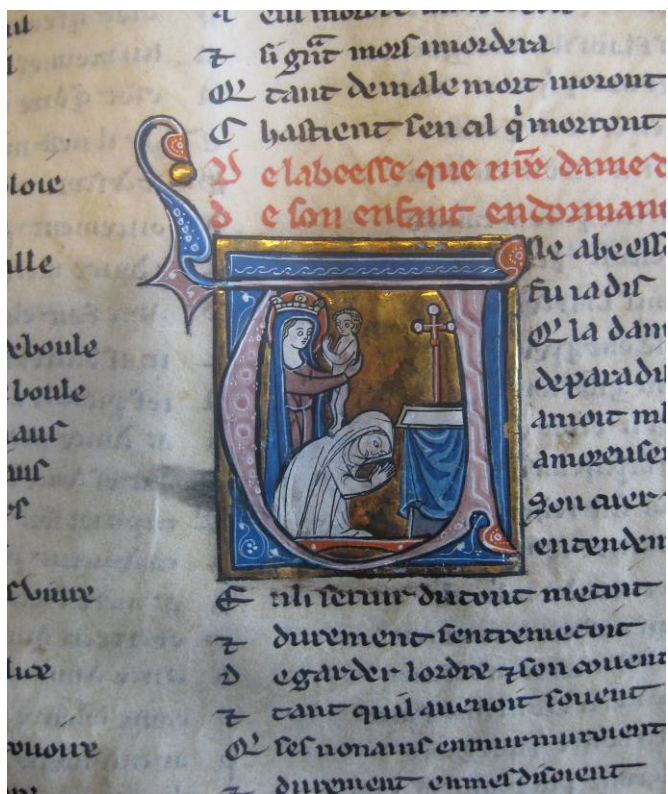 loie
alle
eboule
boule
aus
aus
es
viure
lice
⁊ si gñt mors mordera
Q tant de male mort moront
C hastient sen cil q̍ morront
D e labeesse que nr̄e dame d
d e son enfant endormant
U ne abeesse
fu iadis
Q la dam
de paradis
amoit mi
amoreusem
Son cuer
entendem
E n li seruir du tout metoit
⁊ durement sentremetoit
d e garder lordre ⁊ son couent
⁊ tant quil auenoit souent
Q ses nonains enmurmuroient
⁊ durement enmesdisoient